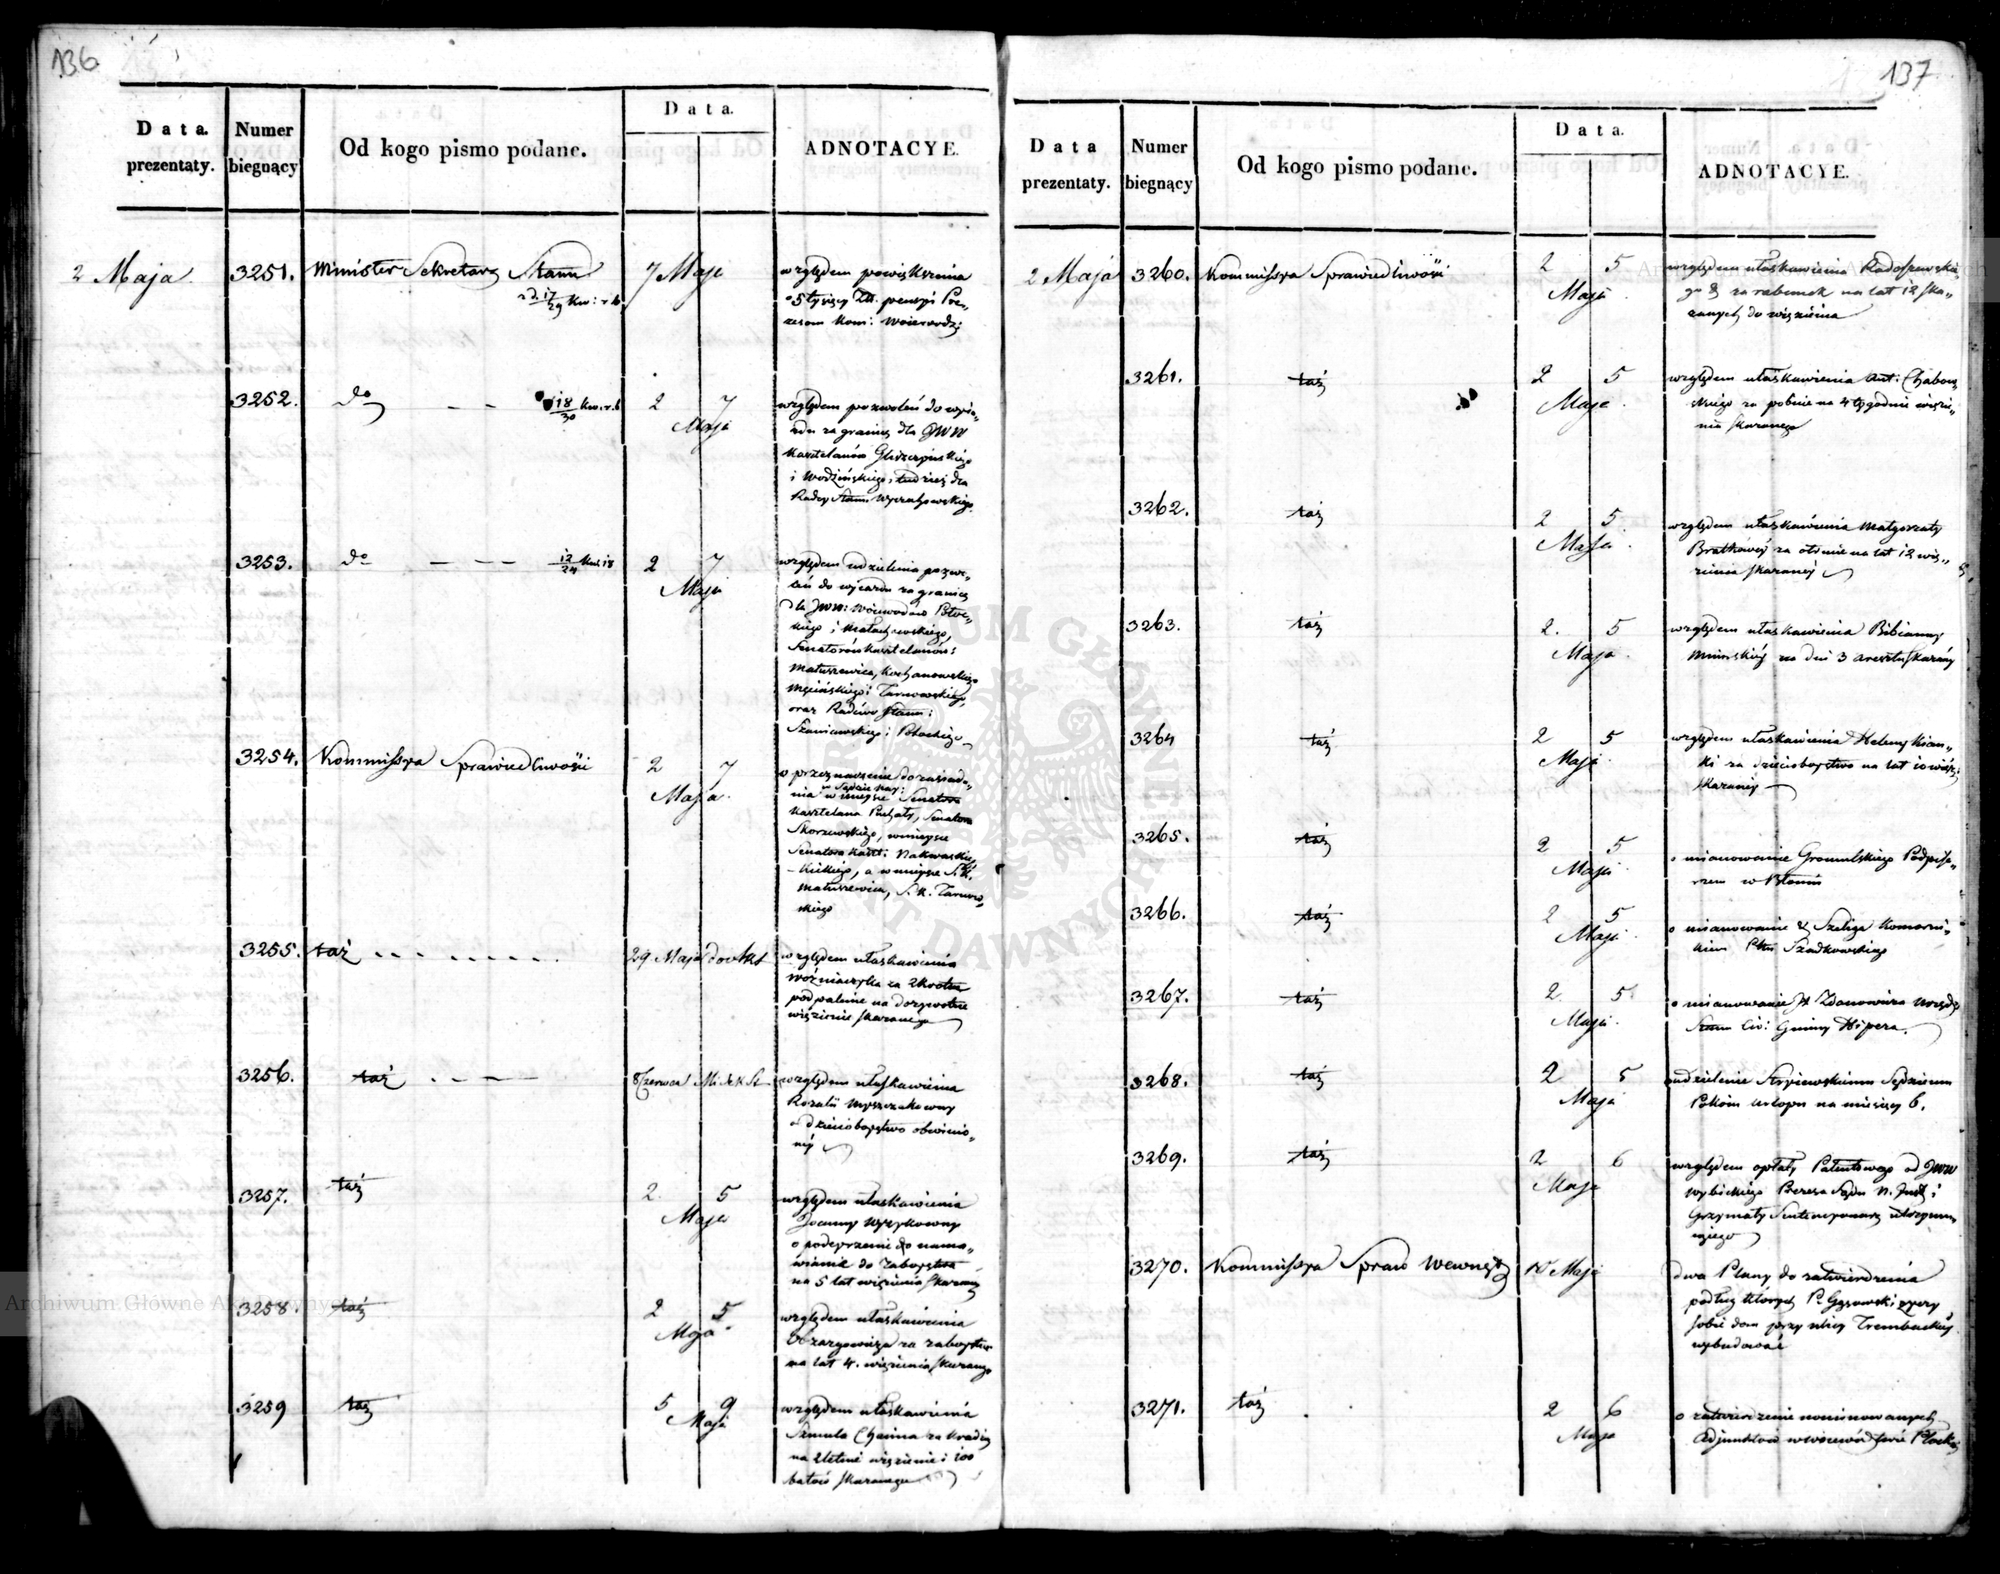 136
Data prezentaty.
Numer biegnący
Od kogo pismo podane.
Data.
ADNOTACYE.
2 Maja
3251.
Minister Sekretarz Stanu
z d. 17/29 Kw: r. b.
7 Maja
względem powiększenia
o 5 tysięcy Zł. pensyi Pre„
zesom Kom: Woiewodz:
3252.
do
18/30 Kw. r. b
2 7
Maja
względem pozwoleń do wyia„
zdu za granicę dla JWW
Kasztelanów Gliszczyńskiego
i Wodzińskiego, tudzież dla
Radcy Stanu Wyczechowskiego
3253.
do
12/24 Kw. r b
2 7
Maja
względem udzielenia pozwo„
leń do wyiazdu za granicę
dla JWW: Woiewodów Potoc„
kiego i Małachowskiego,
Senatorów Kasztelanów:
Matuszewica, Kochanowskiego
Męcińskiego i Tarnowskiego,
oraz Radców Stanu:
Szaniawskiego i Potockiego
3254.
Kommissya Sprawiedliwości
2 7
Maja
o przeznaczenie do zasiada„
nia w Sądzie Nay:
w mieysce Senatora
Kasztelana Puchały, Senatora
Skorzewskiego, w mieysce
Senatora Kaszt: Nakwaskiego
Kickiego, a w mieysce S. K.
Matuszewica, S. K. Tarnow„
skiego
3255.
taż
29 Maja
względem ułaskawienia
Woźniaczyka za 2krotne
podpalenie na dozywotne
więzienie skazanego
3256.
taż
8 Czerwca
względem ułaskawienia
Rozalii Myszczakowny
o dzieciobóystwo obwinio„
néy
3257.
taż
2 5
Maja
względem ułaskawienia
Joanny
o podeyrzenie do namo„
wienie do Zaboystwa
na 5 lat więzienia skazaney
3258.
taż
2 5
Maja
względem ułaskawienia
za zaboystwo
na lat 4. więzienia skazanego
3259
taż
5 9
Maja
względem ułaskawienia
Szmula Chaima za kradzież
na 2letnie więzienie i 100
batów skazanego
137
Data prezentaty.
Numer biegnący
Od kogo pismo podane.
Data.
ADNOTACYE.
2 Maja
3260.
Kommissya Sprawiedliwości
2 5
Maja
względem ułaskawienia Radoszewskie„
go & za rabunek na lat 12 ska„
zanych do więzienia
3261.
taż
2 5
Maja
względem ułaskawienia Ant: Chabow„
skiego za pobicie na 4 tygodnie więzie„
nia skazanego
3262.
taż
2 5
Maja
względem ułaskawienia Małgorzaty
Bratkowéy za otrucie na lat 12 wię„
zienia skazanéy
3263.
taż
2 5
Maja
względem ułaskawienia Bibianny
Mninskiéy na dni 3 aresztu skazanéy
3264
taż
2 5
Maja
względem ułaskawienia Heleny
za dzieciobóystwo na lat 10 więz:
skazanéy
3265.
taż
2 5
Maja
o mianowanie Gromulskiego Podpisa„
rzem w Błoniu
3266.
taż
2 5
Maja
o mianowanie Szeliga Komorni„
kiem Ptu Szadkowskiego
3267.
taż
2 5
Maja
o mianowanie Zdanowicza Urzęd:
Stanu Civ: Gminy Hipera.
3268.
taż
2 5
Maja
udzielenie Stryiewskiemu Sędziemu
Pokoiu urlopu na miesięcy 6.
3269.
taż
2 6
Maja
względem opłaty Patentowego od JWW
Wybickiego Prezesa Sądu N. Inst: i
Grzymały
3270.
Kommissya Spraw Wewnętz
Maja
dwa Plany do zatwierdzenia
podług których P. Gąsowski życzy
sobie dom przy ulicy Trembackiéy
wybudować
3271.
taż
2 6
Maja
o zatwierdzenie nominowanych
Adjunktów w Woiewództwie Płockiem
Archiwum Główne Akt Dawnych
ARCHIWUM GŁÓWNE AKT DAWNYCH